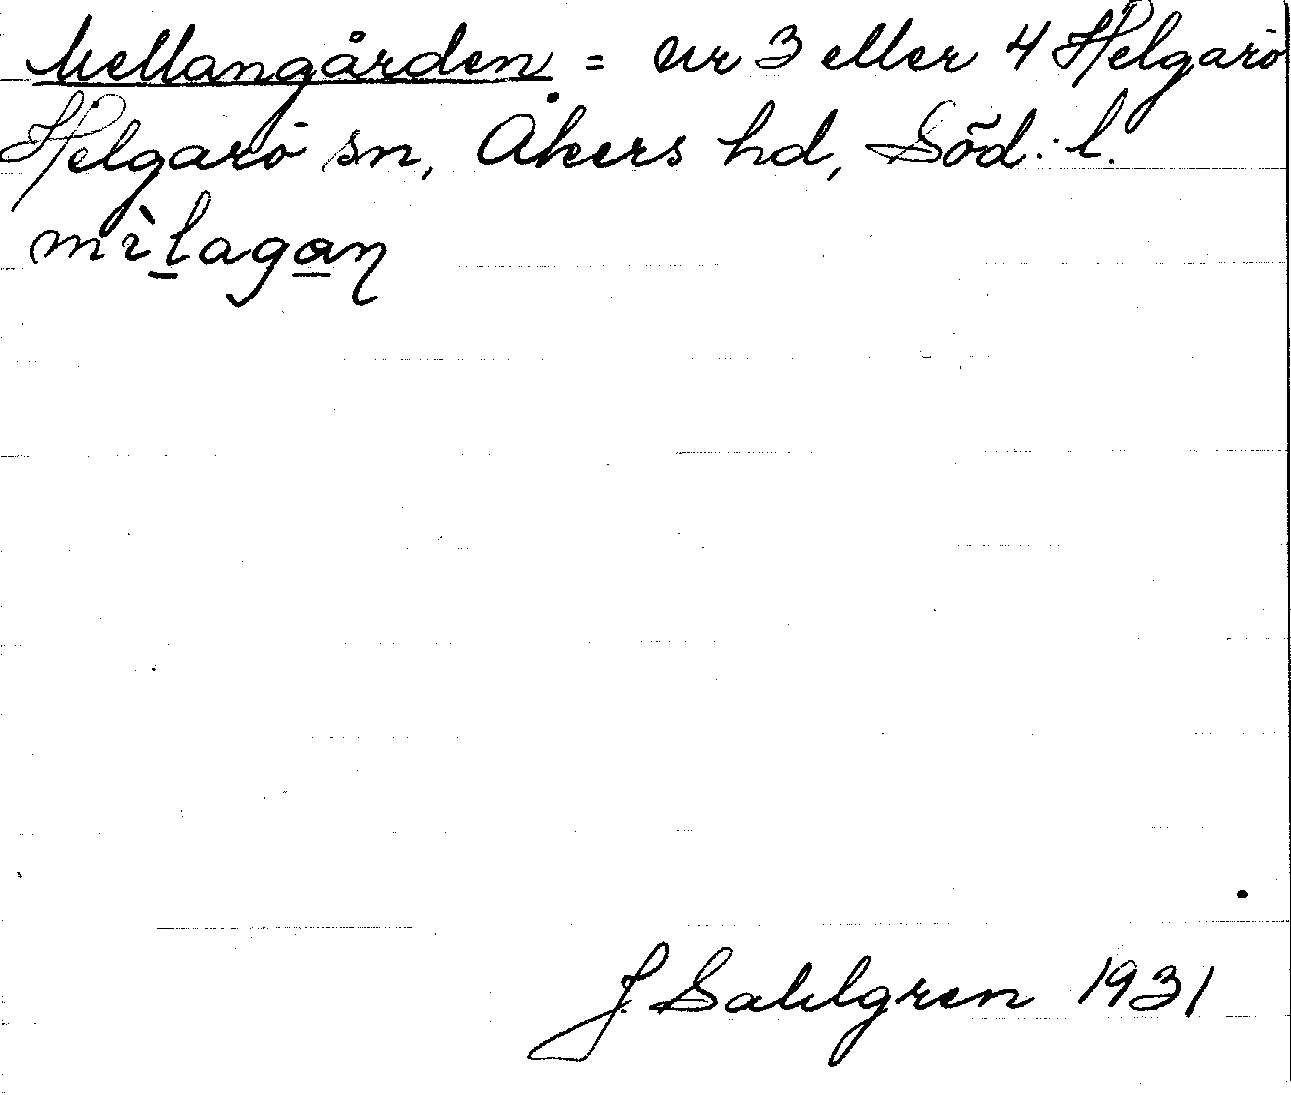 Mellangården = nr 3 eller 4 Helgarö
Helgarö sn, Åkers hd, Söd. l.
mìlagaꞑ
J Sahlgren 1931